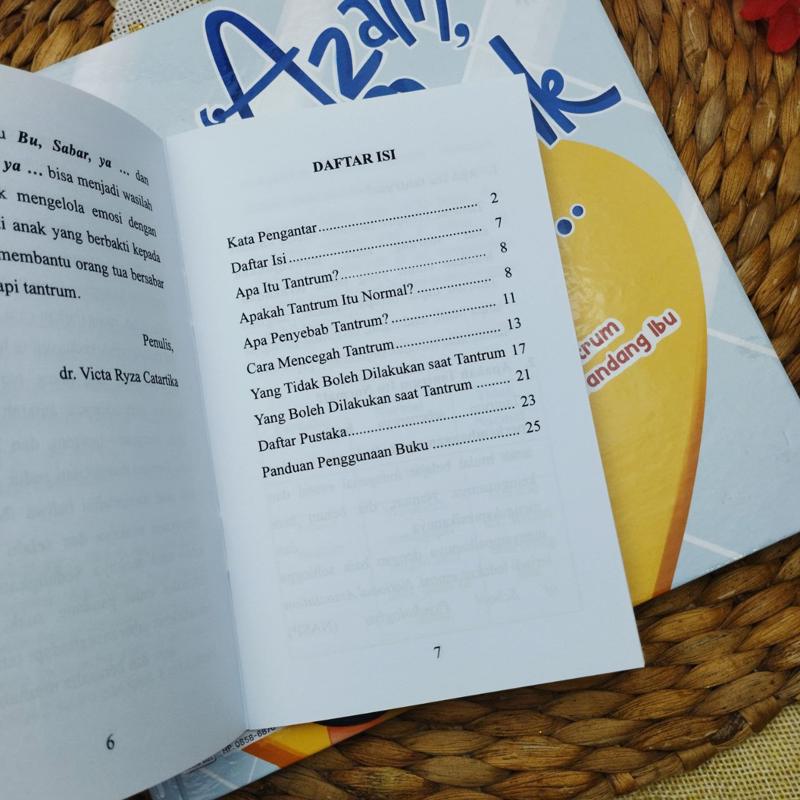 "Azam,
Bu, Sabar, ya ... dan
ya ... bisa menjadi wasilah
mengelola emosi dengan
anak yang berbakti kepada
membantu orang tua bersabar
tantrum.
Penulis,
dr. Victa Ryza Catartika
6
DAFTAR ISI
Kata Pengantar 2
Daftar Isi 7
Apa Itu Tantrum? 8
Apakah Tantrum Itu Normal? 8
Apa Penyebab Tantrum? 11
Cara Mencegah Tantrum 13
Yang Tidak Boleh Dilakukan saat Tantrum 17
Yang Boleh Dilakukan saat Tantrum 21
Daftar Pustaka 23
Panduan Penggunaan Buku 25
7
Ibu